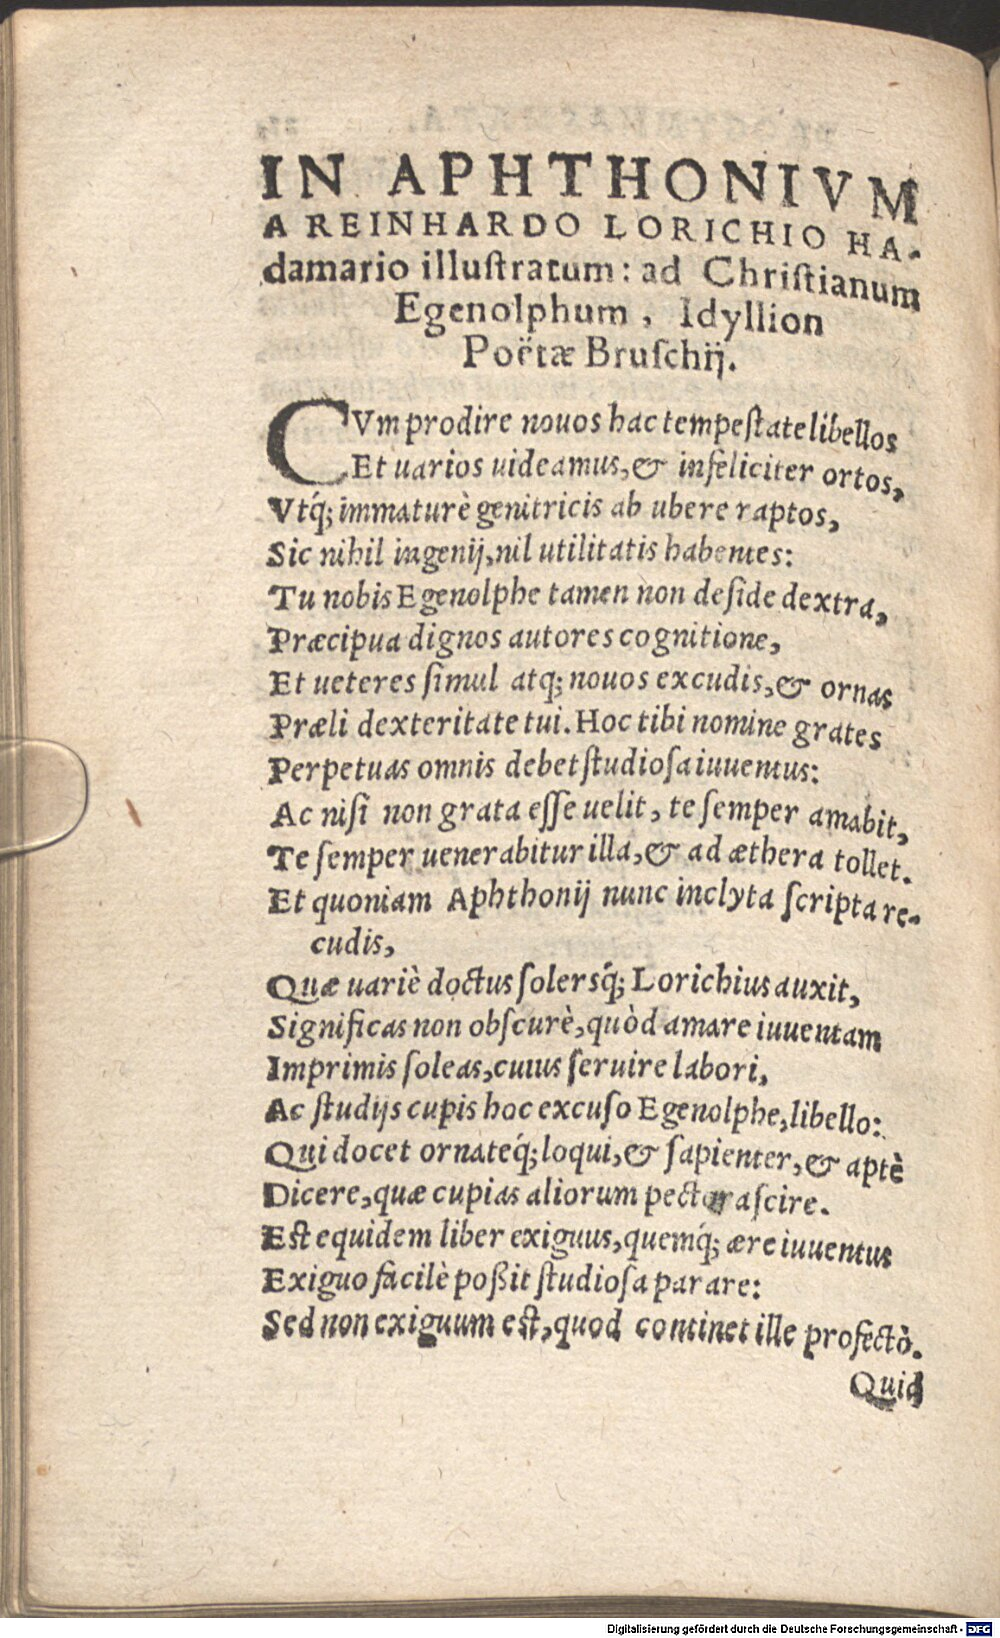 IN APHTHONIVM
A REINHARDO LORICHIO HA-
damario illuſtratum: ad Chriſtianum
Egenolphum, Idyllion
Poëtæ Bruſchij.
CVm prodire nouos hac tempeſtate libellos
Et uarios uideamus, & infeliciter ortos,
Vtq́; immaturè genitricis ab ubere raptos,
Sic nihil ingenij, nil utilitatis habentes:
Tu nobis Egenolphe tamen non deſide dextra,
Præcipua dignos autores cognitione,
Et ueteres ſimul atq; nouos excudis, & ornas
Præli dexteritate tui. Hoc tibi nomine grates
Perpetuas omnis debet ſtudioſa iuuentus:
Ac niſi non grata eſſe uelit, te ſemper amabit,
Te ſemper uenerabitur illa, & ad æthera tollet.
Et quoniam Aphthonij nunc inclyta ſcripta re-
cudis,
Quæ uariè doctus ſolersq́; Lorichius auxit,
Significas non obſcurè, quòd amare iuuentam
Imprimis ſoleas, cuius ſeruire labori,
Ac ſtudijs cupis hoc excuſo Egenolphe, libello:
Qui docet ornateq́; loqui, & ſapienter, & aptè
Dicere, quæ cupias aliorum pectora ſcire.
Eſt equidem liber exiguus, quemq́; ære iuuentus
Exiguo facilè poßit ſtudioſa parare:
Sed non exiguum eſt, quod continet ille profectò.
Quid
Digitalisierung gefördert durch die Deutsche Forschungsgemeinschaft - DFG